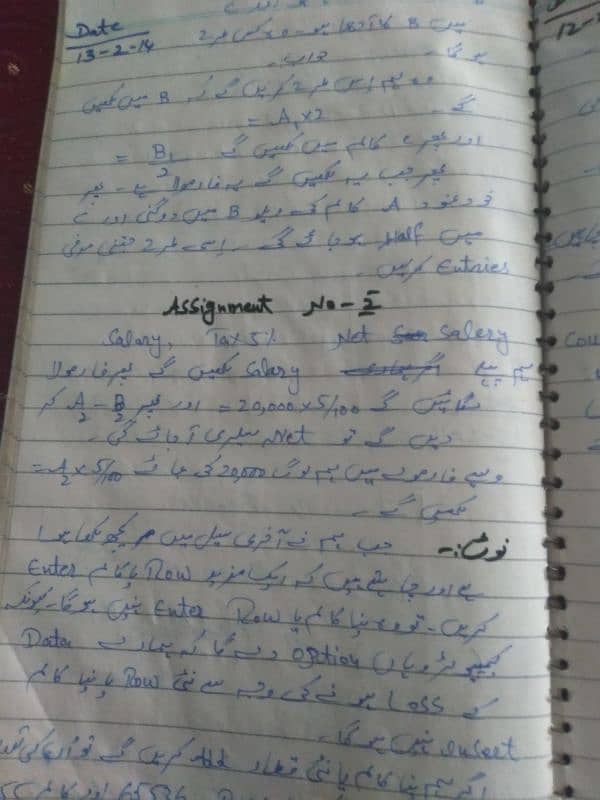 Date
13-2-14
میں B کا آدھا ہو۔ وہ کس طرح
ہو گا۔ جواب۔
وہ ہم اس طرح کریں گے کہ B میں لکھیں
گے = A₁×2
اور کالم میں لکھیں گے = B₁/2
پھر جب یہ لکھیں گے یہ فارمولا ہے۔ پھر
خود بخود A کالم کی ویلیو B میں دوگنی اور
میں Half ہو جائے گی۔ اسی طرح جتنی مرضی
Entries کریں۔
Assignment No-2
Salary, Tax 5% Net Salary
ہم پہلے Salary لکھیں گے پھر فارمولا
لگائیں گے =20,000×5/100 اور پھر A2-B2 کر
دیں گے تو Net سیلری آ جائے گی۔
ویسے فارمولے میں ہم لوگ 20,000 کی جائے =A2×5/100
لکھیں گے۔
نوٹ:- جب ہم نے آخری سیل میں کچھ لکھا ہوا
ہے اور چاہتے ہیں کہ ایک مزید Row یا کالم Enter
کریں۔ تو وہ نیا کالم یا Row Enter نہیں ہو گا۔ کیونکہ
کمپیوٹر وہاں option دے گا کہ ہمارے Data
کے Loss ہونے کی وجہ سے نئی Row یا نیا کالم
Insert نہیں ہو گا۔
اگر ہم نیا کالم یا نئی قطار Add کریں گے تو ان کی
65536 اور کالم
12-2